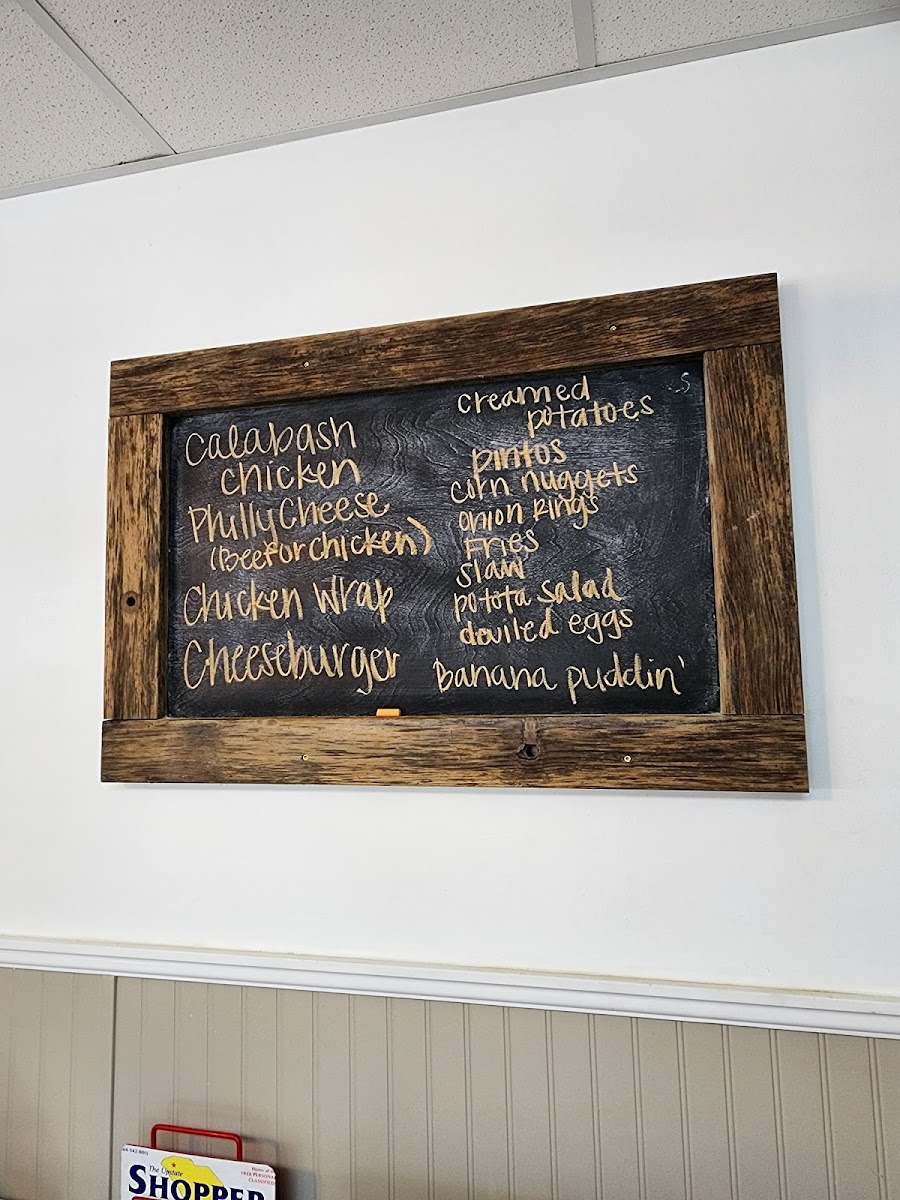 Calabash
chicken
Philly Cheese
(Beef or chicken)
Chicken Wrap
Cheeseburger
creamed
potatoes
pintos
corn nuggets
onion Rings
Fries
slaw
potota salad
deviled eggs
banana puddin'
The Upstate
SHOPPER